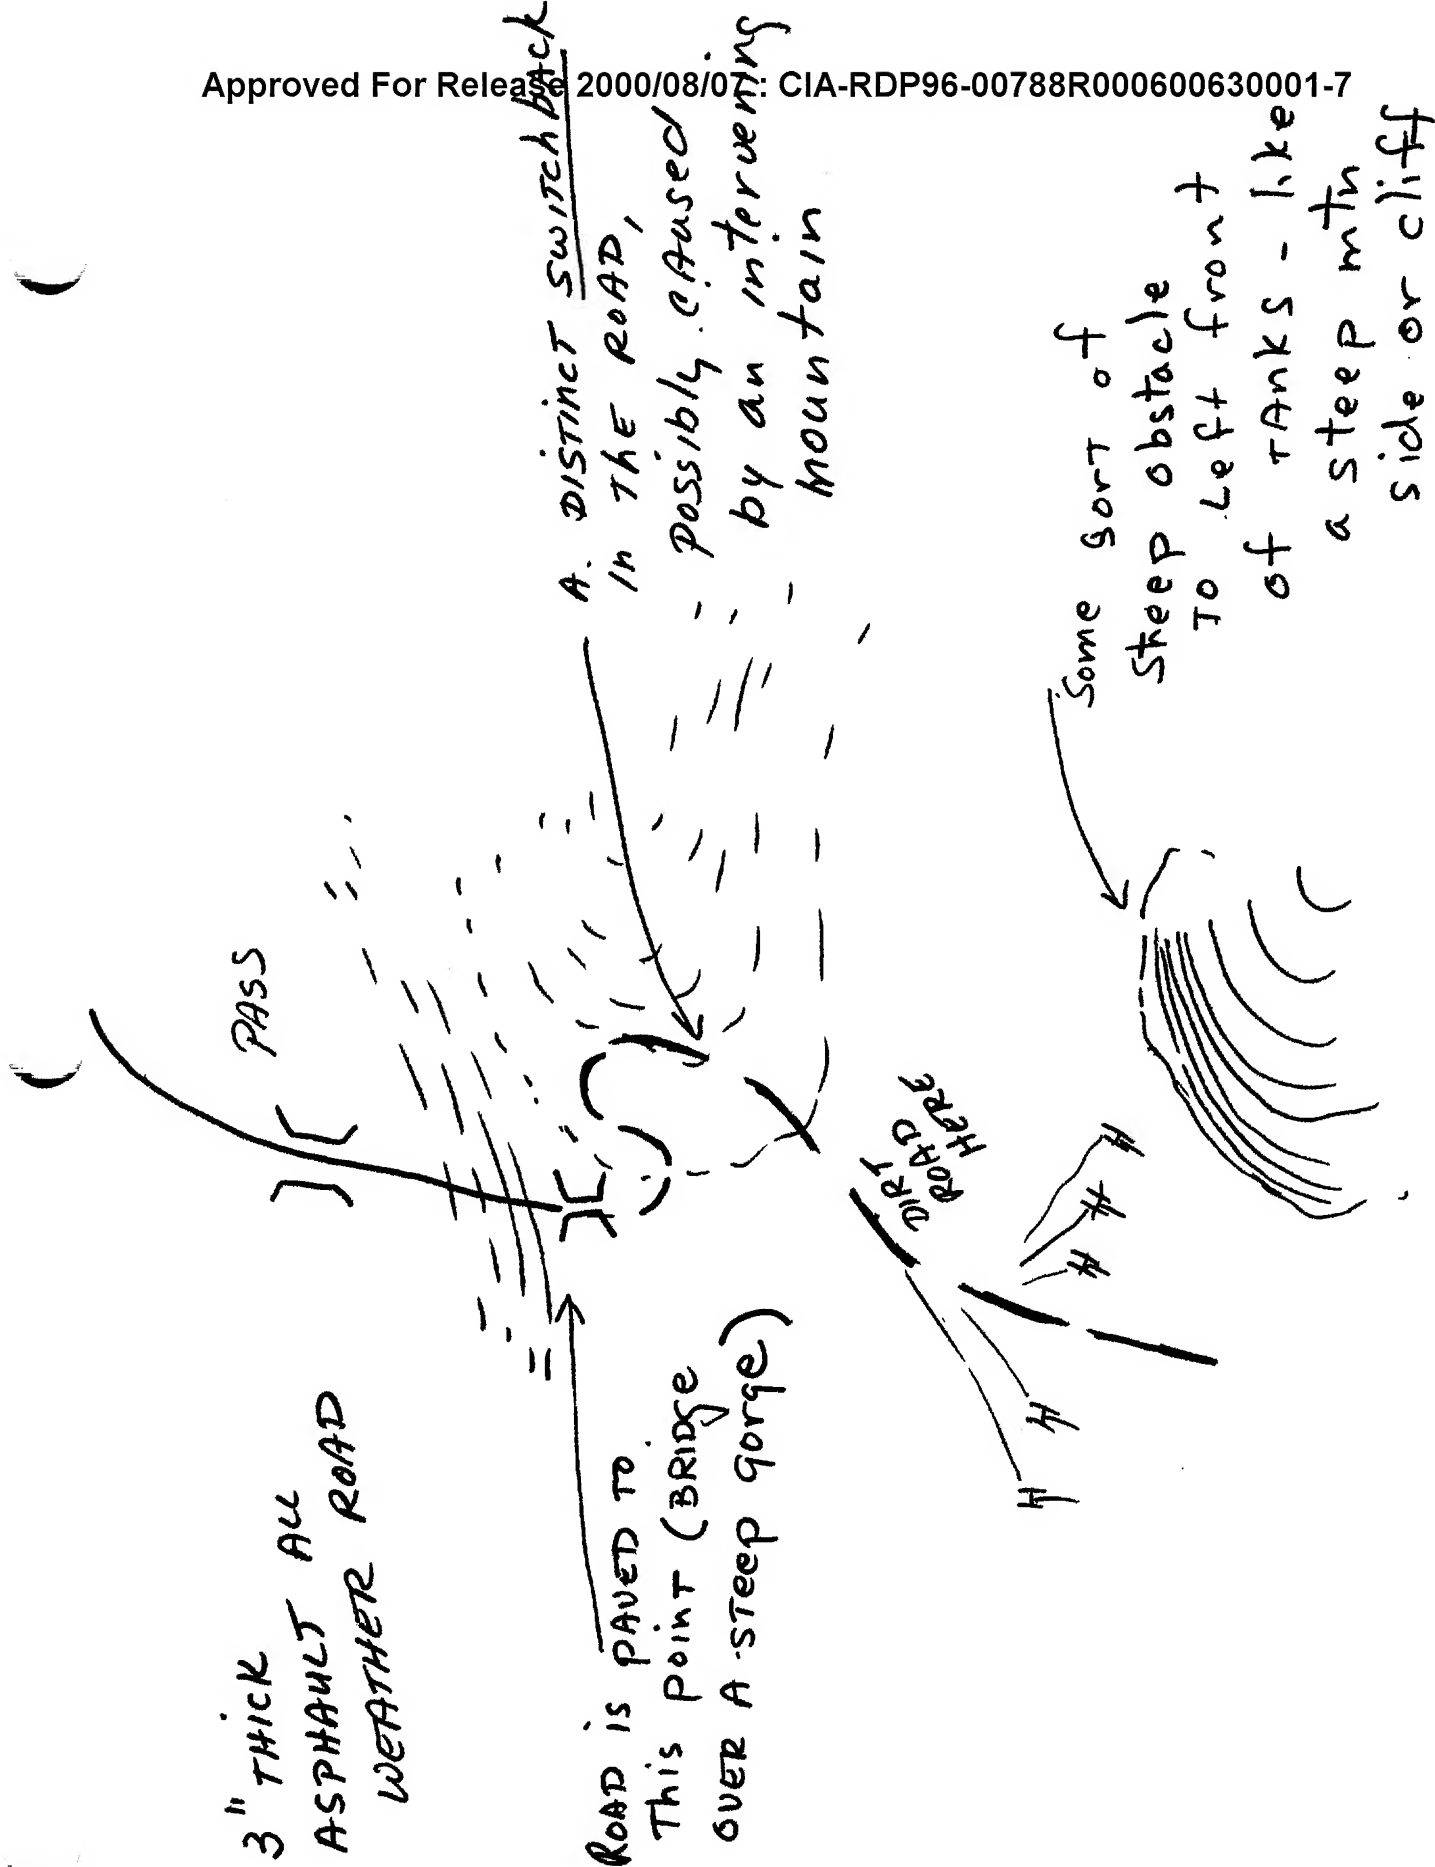 Approved For Release 2000/08/07 : CIA-RDP96-00788R000600630001-7
3" THICK
ASPHAULT ALL
WEATHER ROAD
PASS
ROAD is PAVED TO
This point (BRIDGE
OVER A STeep gorge)
A DISTINCT SWITChbAck
in ThE ROAD,
possibly CAused
by an intervening
mountain
DIRT
ROAD
HERE
Some sort of
Steep obstacle
To Left front
of TANKS - like
a steep mtn
side or cliff